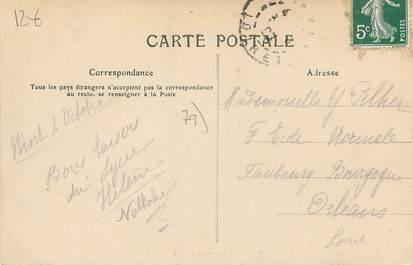 12€
5c
CARTE POSTALE
Correspondance
Adresse
Tous les pays étrangers n'acceptent pas la correspondance
au recto, se renseigner à la Poste
79)
Niort 2 Octobre
Bons baisers
du Lycée
Hélène
Mademoiselle Y
Normale
Faubourg Bourgogne
Orléans
Loiret